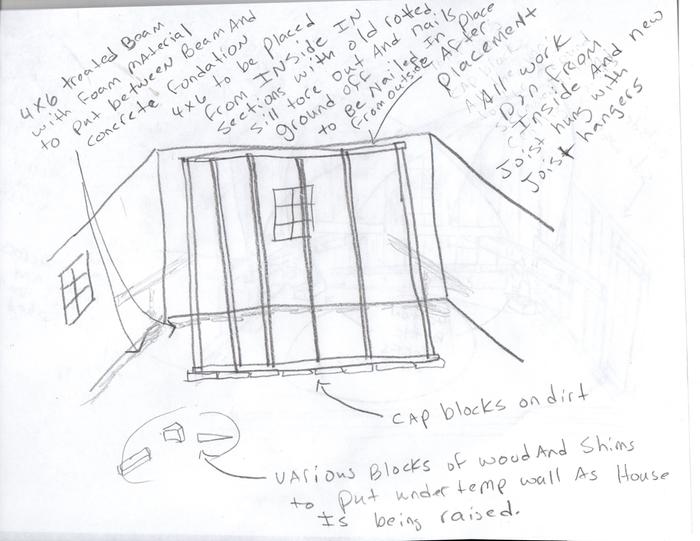 4x6 treated Beam
with Foam material
to put between Beam And
concrete Fondation
4x6 to be placed
from INSide IN
Sections with old rotted
sill tore out And nails
ground off
to Be Nailed In place
From outside After
Placement
All work
Dun From
Inside And new
Joist hung with
Joist hangers
CAP blocks on dirt
VArious Blocks of wood And Shims
to put under temp wall As House
Is being raised.